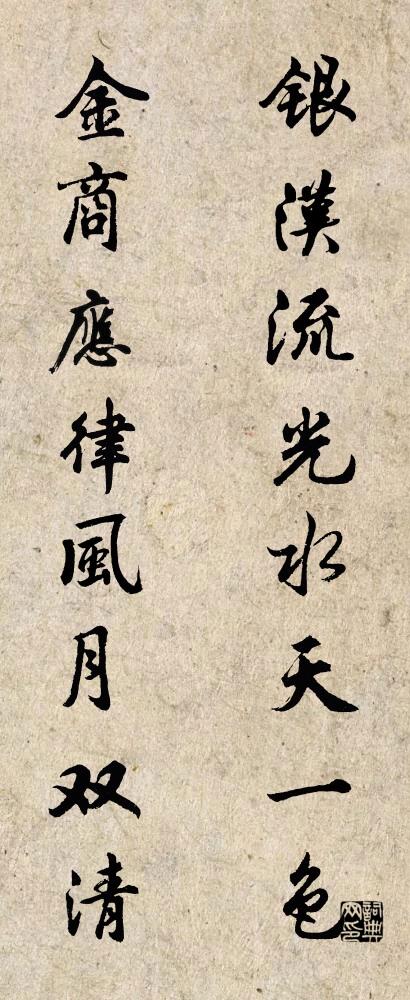 銀漢流光水天一色
金商應律風月双清
詞典
网印